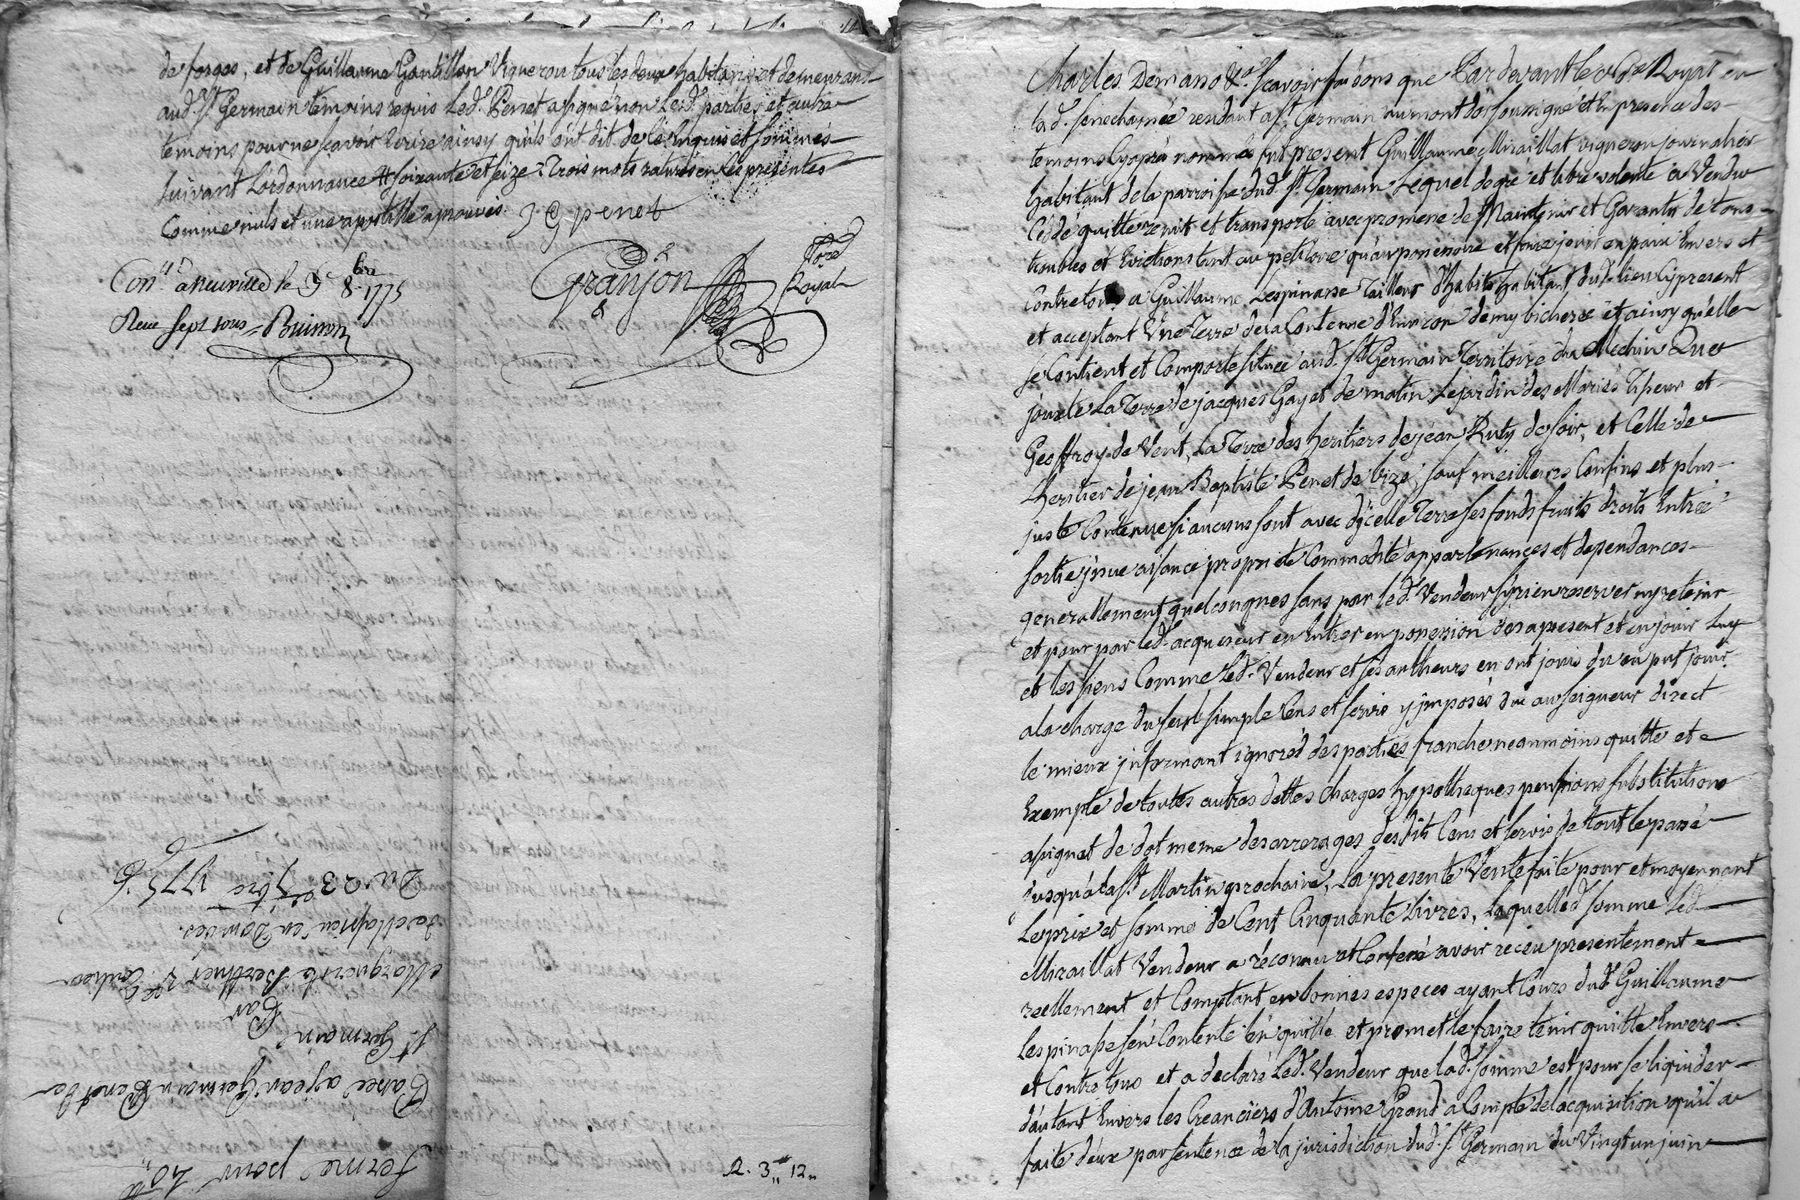 de forges, et de Guillaume Gantillon Vigneron tous les deux habitans et demeurans
aud. St. Germain temoins requis led. Penet a signé non lesd. parties et autre
temoins pour ne scavoir écrire ainsy qu'ils ont dit de ce enquis et sommés
suivant L'ordonnance # soixante et seize Trois mots raturés en les presentes
Comme nuls et une apostille aprouvés. J. G. penet
Con.lé a neuville le 9e 8.bre 1775
Receu sept sous Buisson
Granjon Nore Royal
Du 23 7bre 1775
en Dombes.
Marguerite Berthier
Par
St. Germain
Passée a jean Germain Penet de
Ferme pour 40
2. 3" 12"
Charles Demano &a. scavoir faisons que Pardevant le Nore Royal en
lad. senechaussée residant a St. Germain au mont d'or soussigné et en presence des
temoins cyaprès nommés fut present Guillaume Miraillat vigneron journalier
habitant de la parroisse dud. St. Germain Lequel de gré et libre volonté a Vendu
Cédé quitte remit et transporté avec promesse de Maintenir et Garantir de tous
troubles et Evictions tant au petitoire qu'au possessoire et faire jouir en paix Envers et
Contre tous a Guillaume Lespinasse Tailleur d'habits habitant dud. lieu Cy present
et acceptant Une Terre de la Contenue d'Environ demy bicherée et ainsy qu'elle
se Contient et Comporte située aud. St. Germain Territoire du Mechin Que
jouxte La Terre de jacques Gayet de matin, Le jardin des Mariés Tisseur et
Geoffroy de Vent, La Terre des heritiers de jean Ruty de soir, et Celle de
L'heritier de jean Baptiste Penet de bize, sauf meilleurs Confins et plus
juste Contenue si aucuns sont avec d'ycelle Terre ses fonds fruits droits Entrée
sortie issue aisance proprieté Commodité appartenances et dependances
generallement quelconques sans par led. Vendeur s'y rien reserver ny retenir
et pour par led. acquereur en Entrer en possession des apresent et en jouir Luy
et les siens Comme led. Vendeur et ses autheurs en ont jouis du en put jouir
a la charge du seul simple Cens et servis y imposés du au seigneur direct
le mieux informant ignoré des parties franche neanmoins quitte et
Exempte de toutes autres dettes Charges hypotheques pensions substitutions
assignat de dot meme des arrerages desdits Cens et servis de tout le passé
jusqu'a la St. Martin prochaine, La presente Vente faite pour et moyennant
Le prix et somme de Cent Cinquante Livres, Laquelle d. somme led.
Miraillat Vendeur a réconnu et Confessé avoir receu presentement
reellement et Comptant en bonnes especes ayant Cours dud. Guillaume
Lespinasse s'en Contente l'en quitte et promet le faire tenir quitte Envers
et Contre tous et a declaré led. Vendeur que lad. somme est pour se liquider
d'autant Envers les Creanciers d'Antoine Grand a Compte de l'acquisition qu'il a
faite d'eux par sentence de la jurisdiction dud. St. Germain du Vingt un juin